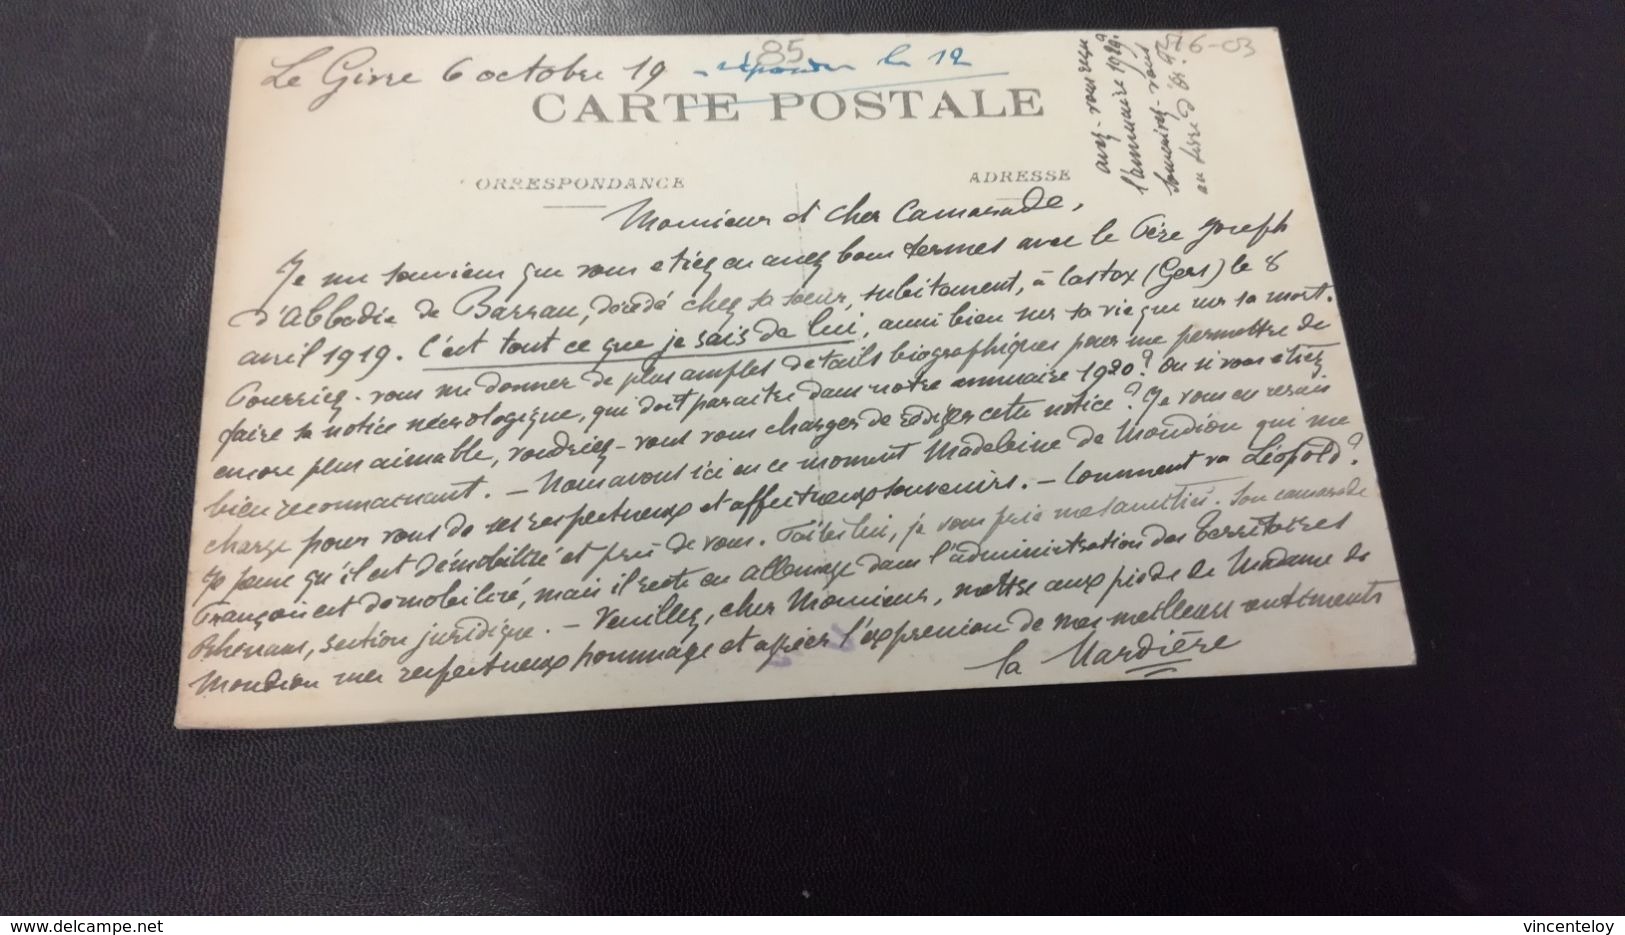 Le Givre 6 octobre 19
85
répondu le 12
76-03
CARTE POSTALE
ORRESPONDANCE
ADRESSE
avez-vous reçu
l'annuaire 1919?
souvenirs-vous
au livre d'or?
Monsieur et cher Camarade,
Je me souviens que vous étiez en assez bons termes avec le Père Joseph
d'Abbadie de Barrau, décédé chez sa soeur, subitement, à Castex (Gers) le 8
avril 1919. C'est tout ce que je sais de lui, aussi bien sur sa vie que sur sa mort.
Pourriez-vous me donner de plus amples détails biographiques pour me permettre de
faire sa notice nécrologique, qui doit paraître dans notre annuaire 1920? Ou si vous étiez
encore plus aimable, voudriez-vous vous charger de rédiger cette notice? Je vous en serais
bien reconnaissant. - Nous avons ici en ce moment Madeleine de Moudion qui me
charge pour vous de ses respectueux et affectueux souvenirs. - Comment va Léopold?
Je pense qu'il est démobilisé et près de vous. Faites lui, je vous prie mes amitiés. Son camarade
François est démobilisé, mais il reste en Allemagne dans l'administration des Territoires
Rhénans, section juridique. - Veuillez, cher Monsieur, mettre aux pieds de Madame de
Moudion mes respectueux hommages et agréer l'expression de mes meilleurs sentiments
la Mardière
vincenteloy